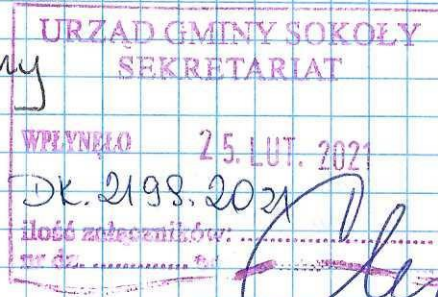 URZĄD GMINY SOKOŁY
SEKRETARIAT
ny
WPŁYNĘŁO 25. LUT. 2021
DK. 2198. 2021
ilość załączników: ....................